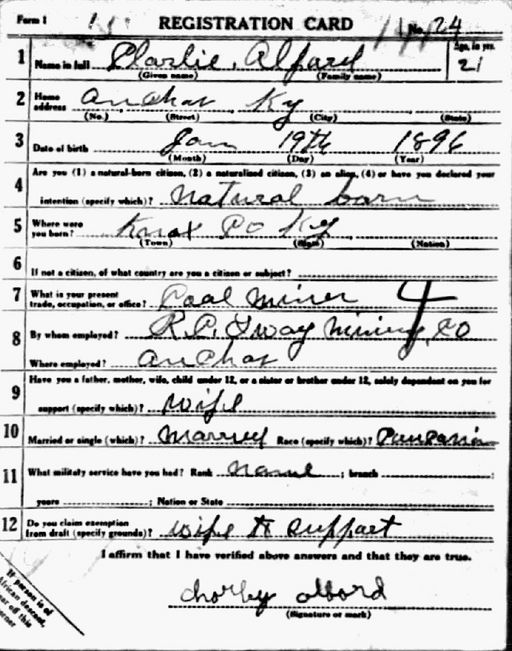 Form 1 REGISTRATION CARD No. 24
1 Name in full Charlie. Alford Age, in yrs. 21
(Given name) (Family name)
2 Home address Anchar Ky
(No.) (Street) (City) (State)
3 Date of birth Jan 19th 1896
(Month) (Day) (Year)
4 Are you (1) a natural-born citizen, (2) a naturalized citizen, (3) an alien, (4) or have you declared your
intention (specify which)? Natural born
5 Where were you born? Knox Co Ky
(Town) (State) (Nation)
6 If not a citizen, of what country are you a citizen or subject?
7 What is your present trade, occupation, or office? Coal Miner 4
8 By whom employed? Mining Co
Where employed? Anchar
9 Have you a father, mother, wife, child under 12, or a sister or brother under 12, solely dependent on you for
support (specify which)? Wife
10 Married or single (which)? Married Race (specify which)?
11 What military service have you had? Rank None ; branch
years ; Nation or State
12 Do you claim exemption from draft (specify grounds)? Wife to support
I affirm that I have verified above answers and that they are true.
chorley olbord
(Signature or mark)
If person is of
African descent,
off this
corner